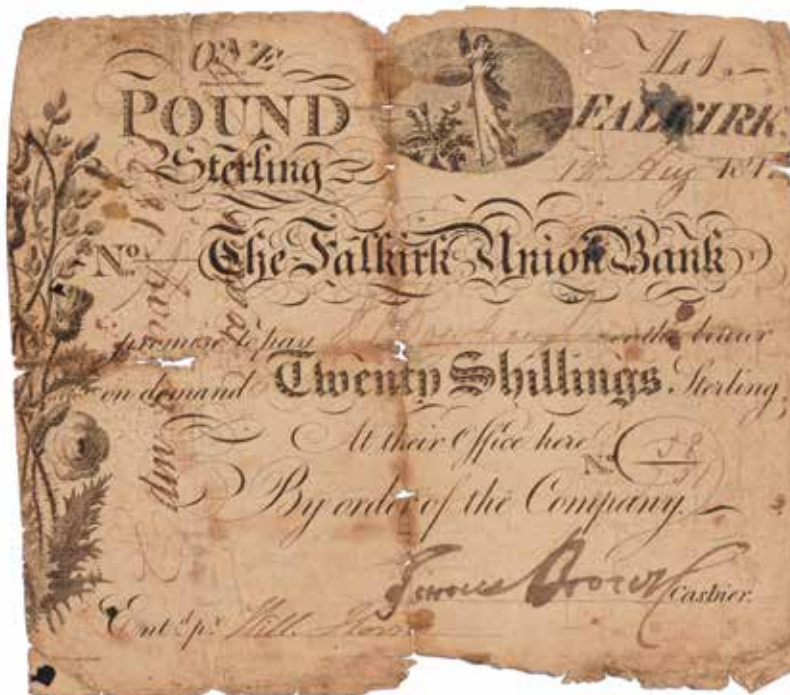 ONE
POUND
Sterling
L1.-
FALKIRK
12 Aug 181
No. The Falkirk Union Bank
promise to pay or the bearer
on demand Twenty Shillings Sterling,
At their Office here
No. 58
By order of the Company.
Cashier.
Ent.d p.r Will.